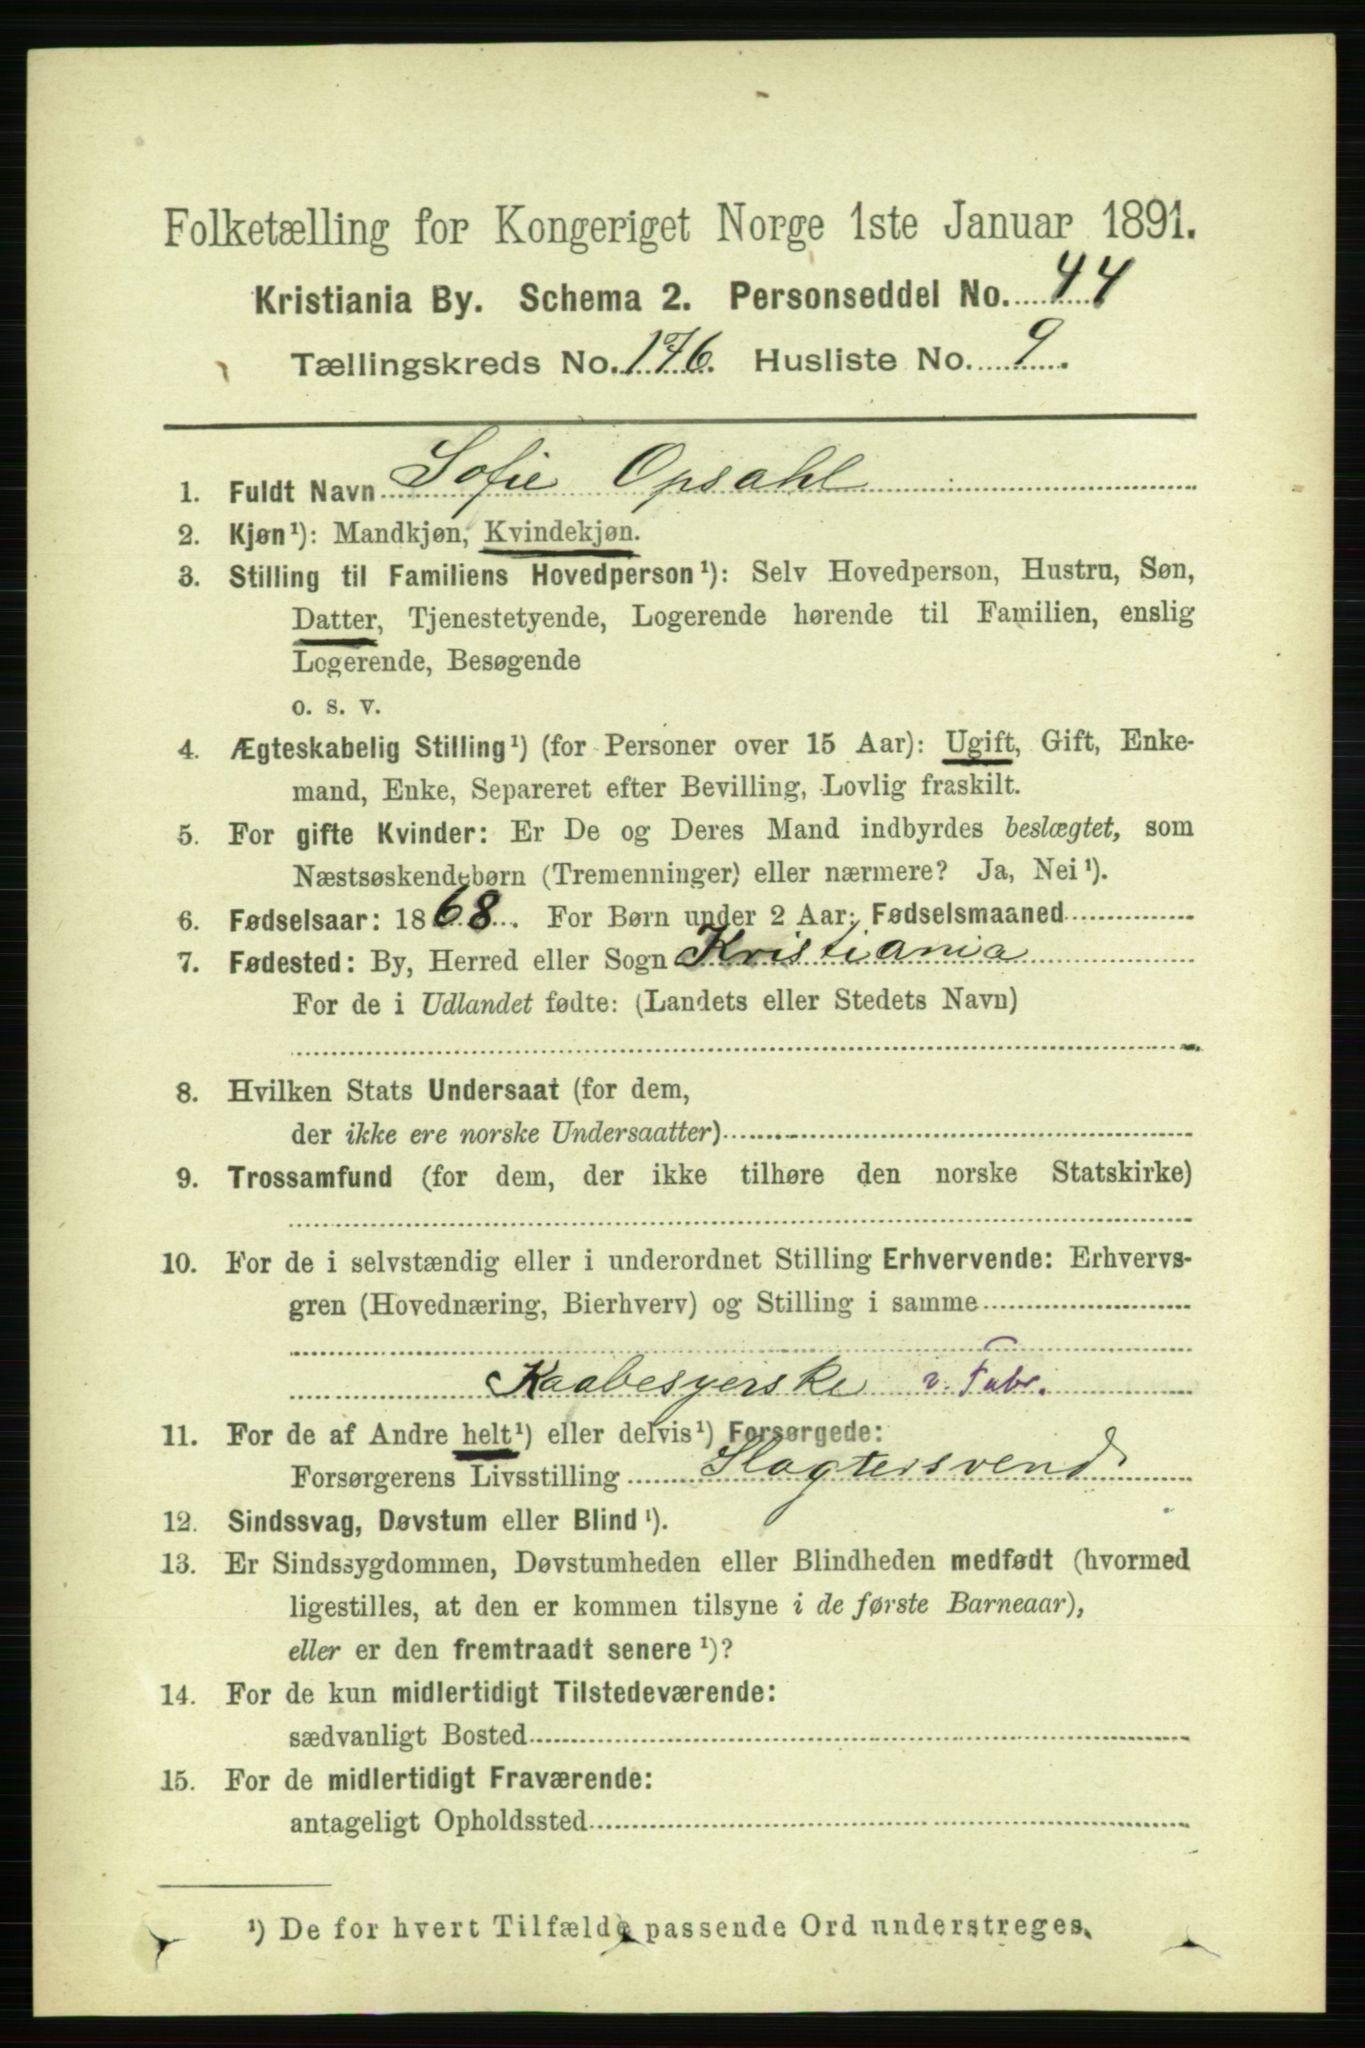 Folketælling for Kongeriget Norge 1ste Januar 1891.
Kristiania By. Schema 2. Personseddel No. 44
Tællingskreds No. 176. Husliste No. 9.
1. Fuldt Navn Sofie Opsahl
2. Kjøn¹): Mandkjøn, Kvindekjøn.
3. Stilling til Familiens Hovedperson¹): Selv Hovedperson, Hustru, Søn,
Datter, Tjenestetyende, Logerende hørende til Familien, enslig
Logerende, Besøgende
o. s. v.
4. Ægteskabelig Stilling¹) (for Personer over 15 Aar): Ugift, Gift, Enke-
mand, Enke, Separeret efter Bevilling, Lovlig fraskilt.
5. For gifte Kvinder: Er De og Deres Mand indbyrdes beslægtet, som
Næstsøskendebørn (Tremenninger) eller nærmere? Ja, Nei¹).
6. Fødselsaar: 1868. For Børn under 2 Aar: Fødselsmaaned
7. Fødested: By, Herred eller Sogn Kristiania
For de i Udlandet fødte: (Landets eller Stedets Navn)
8. Hvilken Stats Undersaat (for dem,
der ikke ere norske Undersaatter)
9. Trossamfund (for dem, der ikke tilhøre den norske Statskirke)
10. For de i selvstændig eller i underordnet Stilling Erhvervende: Erhvervs-
gren (Hovednæring, Bierhverv) og Stilling i samme
Kaabesyerske v. Fabr.
11. For de af Andre helt¹) eller delvis¹) Forsørgede:
Forsørgerens Livsstilling Slagtersvend
12. Sindssvag, Døvstum eller Blind¹).
13. Er Sindssygdommen, Døvstumheden eller Blindheden medfødt (hvormed
ligestilles, at den er kommen tilsyne i de første Barneaar),
eller er den fremtraadt senere¹)?
14. For de kun midlertidigt Tilstedeværende:
sædvanligt Bosted
15. For de midlertidigt Fraværende:
antageligt Opholdssted
¹) De for hvert Tilfælde passende Ord understreges.